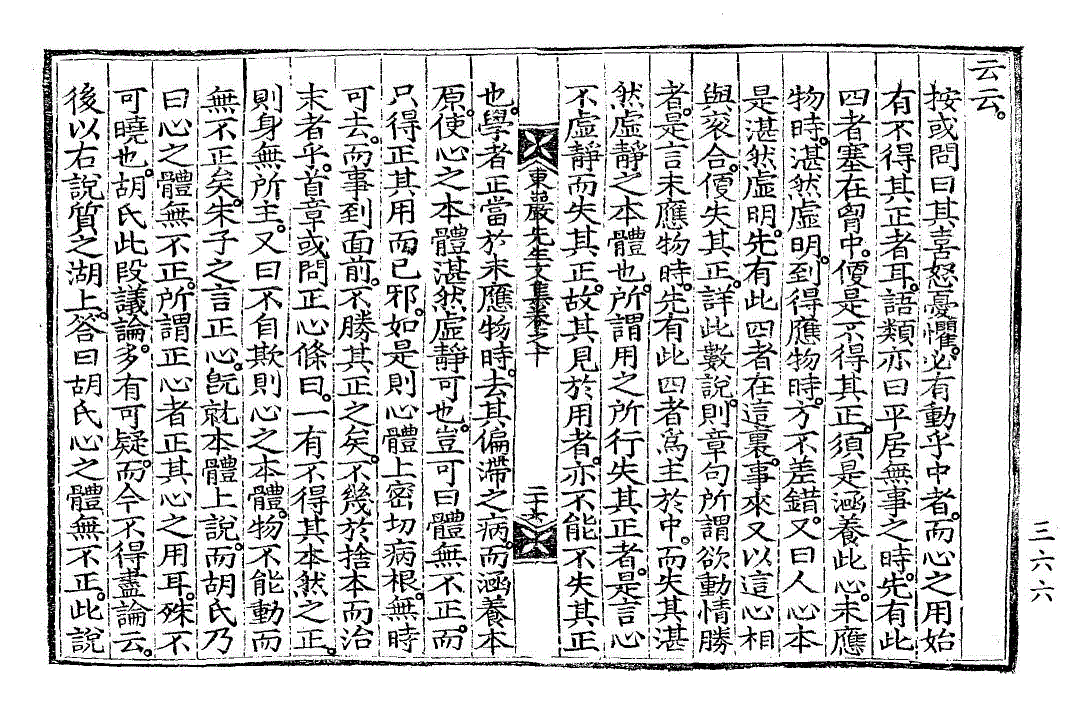 云云。
按或問曰其喜怒憂懼。必有動乎中者。而心之用始
有不得其正者耳。語類亦曰平居無事之時。先有此
四者塞在胷中。便是不得其正。須是涵養此心。未應
物時。湛然虛明。到得應物時。方不差錯。又曰人心本
是湛然虛明。先有此四者在這裏。事來又以這心相
與衮合。便失其正。詳此數說。則章句所謂欲動情勝
者。是言未應物時。先有此四者爲主於中。而失其湛
然虛靜之本體也。所謂用之所行失其正者。是言心
不虛靜而失其正。故其見於用者。亦不能不失其正
東巖先生文集卷之十
二十六
也。學者正當於未應物時。去其偏滯之病而涵養本
原。使心之本體湛然虛靜可也。豈可曰體無不正。而
只得正其用而已邪。如是則心體上密切病根。無時
可去。而事到面前。不勝其正之矣。不幾於捨本而治
末者乎。首章或問正心條曰。一有不得其本然之正。
則身無所主。又曰不自欺則心之本體。物不能動而
無不正矣。朱子之言正心。旣就本體上說。而胡氏乃
曰心之體無不正。所謂正心者正其心之用耳。殊不
可曉也。胡氏此段議論。多有可疑。而今不得盡論云。
後以右說質之湖上。答曰胡氏心之體無不正。此說
三六六